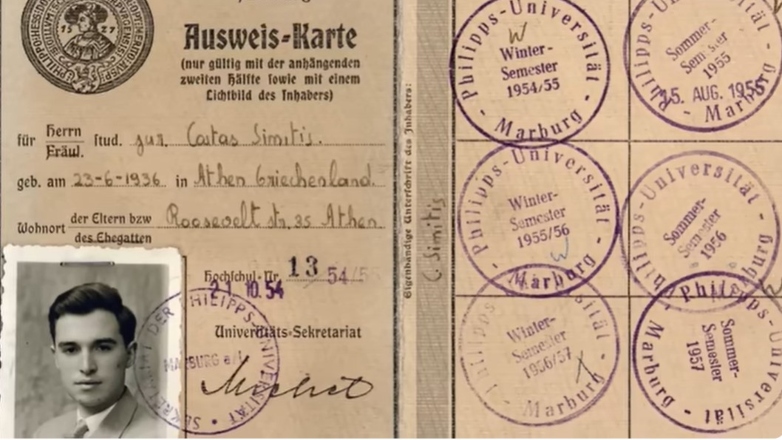 1527
Ausweis-Karte
(nur gültig mit der anhängenden
zweiten Hälfte sowie mit einem
Lichtbild des Inhabers)
für Herrn stud. jur. Costas Simitis.
Fräul.
geb. am 23-6-1936 in Athen Griechenland.
Wohnort der Eltern bzw Roosevelt str. 35 Athen.
des Ehegatten
Hochschul-Nr. 13 54/55
21. 10. 54
Universitäts-Sekretariat
SEKRETARIAT DER PHILIPPS-UNIVERSITÄT
MARBURG a/L
Eigenhändige Unterschrift des Inhabers:
C. Simitis
Philipps-Universität
W
Winter-
Semester
1954/55
Marburg
Philipps-Universität
Sommer-
Semester
1955
25. AUG. 1955
Marburg
Philipps-Universität
Winter-
Semester
1955/56
Marburg
Philipps-Universität
Sommer-
Semester
1956
Winter-
Semester
1956/57
Marburg
Philipps-Universität
Sommer-
Semester
1957
Marburg